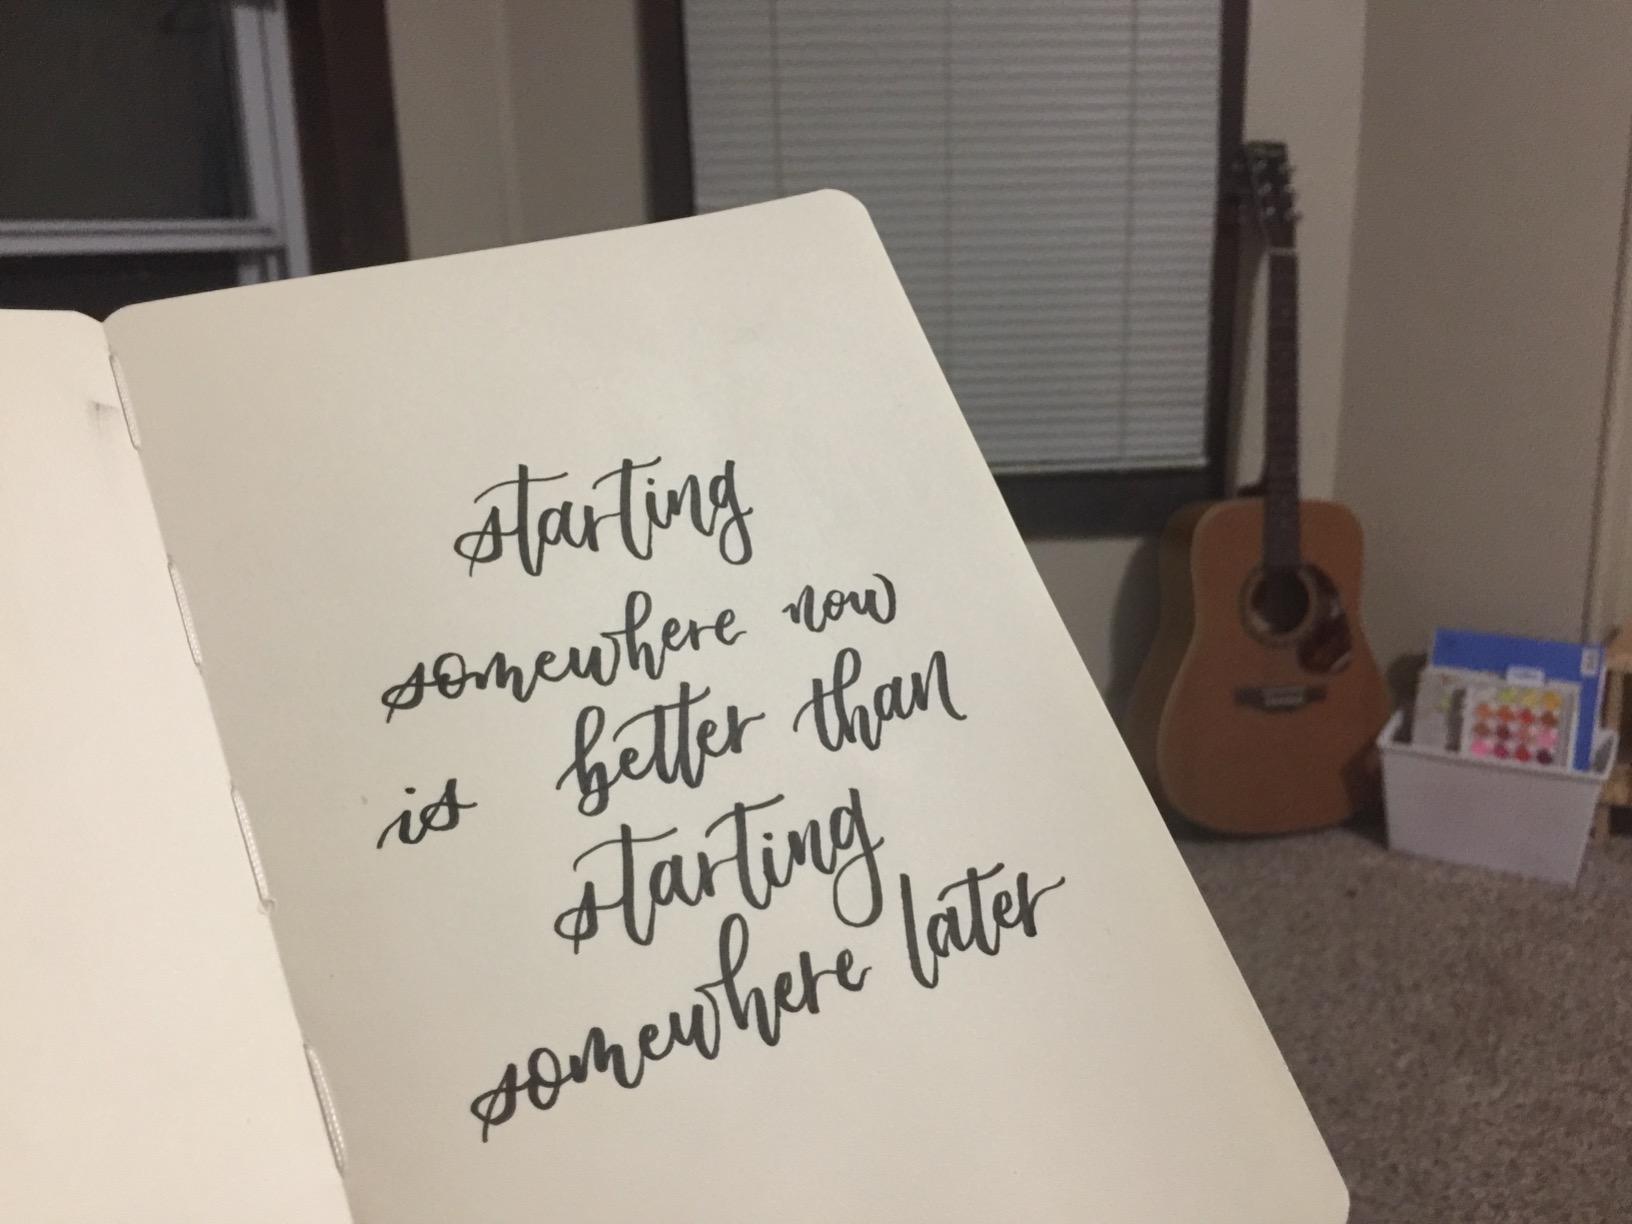 starting
somewhere now
is better than
starting
somewhere later